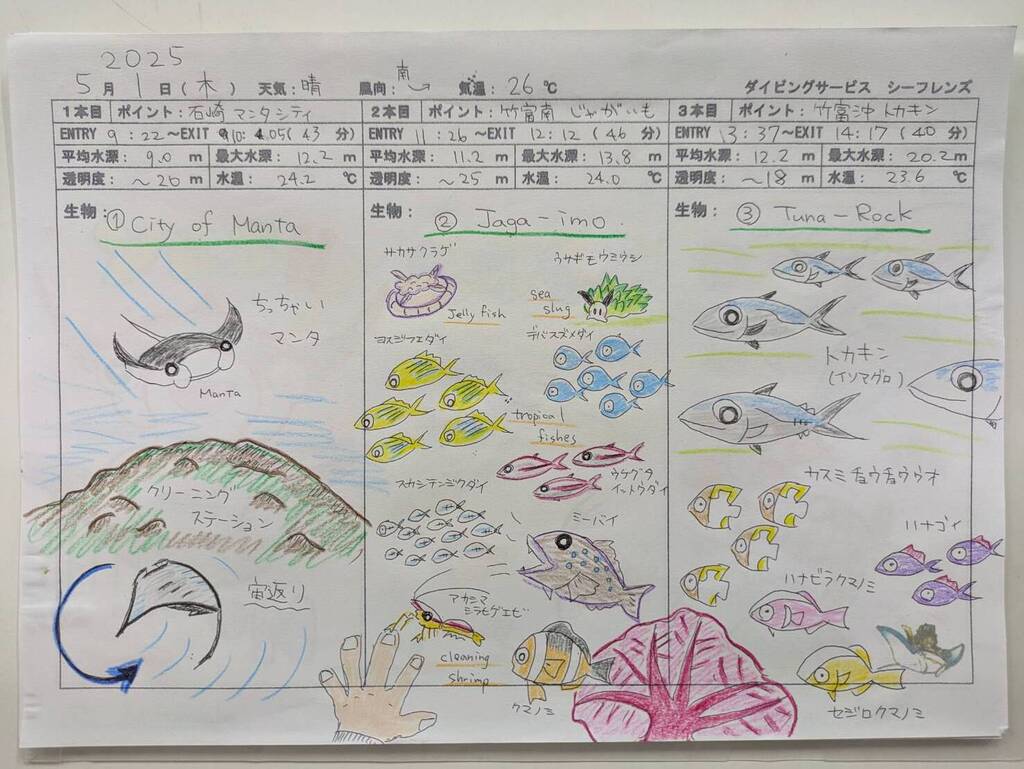 2025
5月1日(木) 天気:晴 風向:南 気温:26℃ ダイビングサービス シーフレンズ
1本目 ポイント:石崎マンタシティ
ENTRY 9:22~EXIT 10:05(43分)
平均水深: 9.0 m 最大水深: 12.2 m
透明度: ~20 m 水温: 24.2 ℃
生物:① City of Manta
ちっちゃい
マンタ
Manta
クリーニング
ステーション
宙返り
2本目 ポイント:竹富南 じゃがいも
ENTRY 11:26~EXIT 12:12(46分)
平均水深: 11.2 m 最大水深: 13.8 m
透明度: ~25 m 水温: 24.0 ℃
生物: ② Jaga-imo
サカサクラゲ
Jelly fish
ウサギモウミウシ
sea
slug
ヨスジフエダイ
デバスズメダイ
tropical
fishes
ウケグチ
イットウダイ
スカシテンジクダイ
ミーバイ
アカシマ
シラヒゲエビ
cleaning
shrimp
クマノミ
3本目 ポイント:竹富沖トカキン
ENTRY 13:37~EXIT 14:17(40分)
平均水深: 12.2 m 最大水深: 20.2m
透明度: ~18 m 水温: 23.6 ℃
生物: ③ Tuna-Rock
トカキン
(イソマグロ)
カスミチョウチョウウオ
ハナゴイ
ハナビラクマノミ
セジロクマノミ